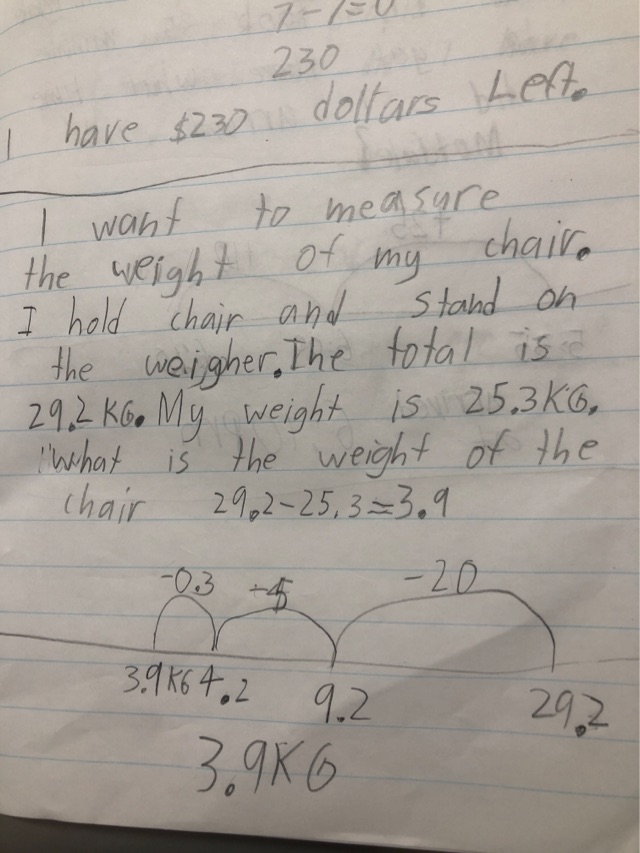 7-7=0
230
I have $230 dollars Left.
I want to measure
the weight of my chair.
I hold chair and stand on
the weigher. The total is
29.2 KG. My weight is 25.3KG.
"What is the weight of the
chair 29.2-25.3=3.9
-0.3 -5 -20
3.9KG 4.2 9.2 29.2
3.9KG